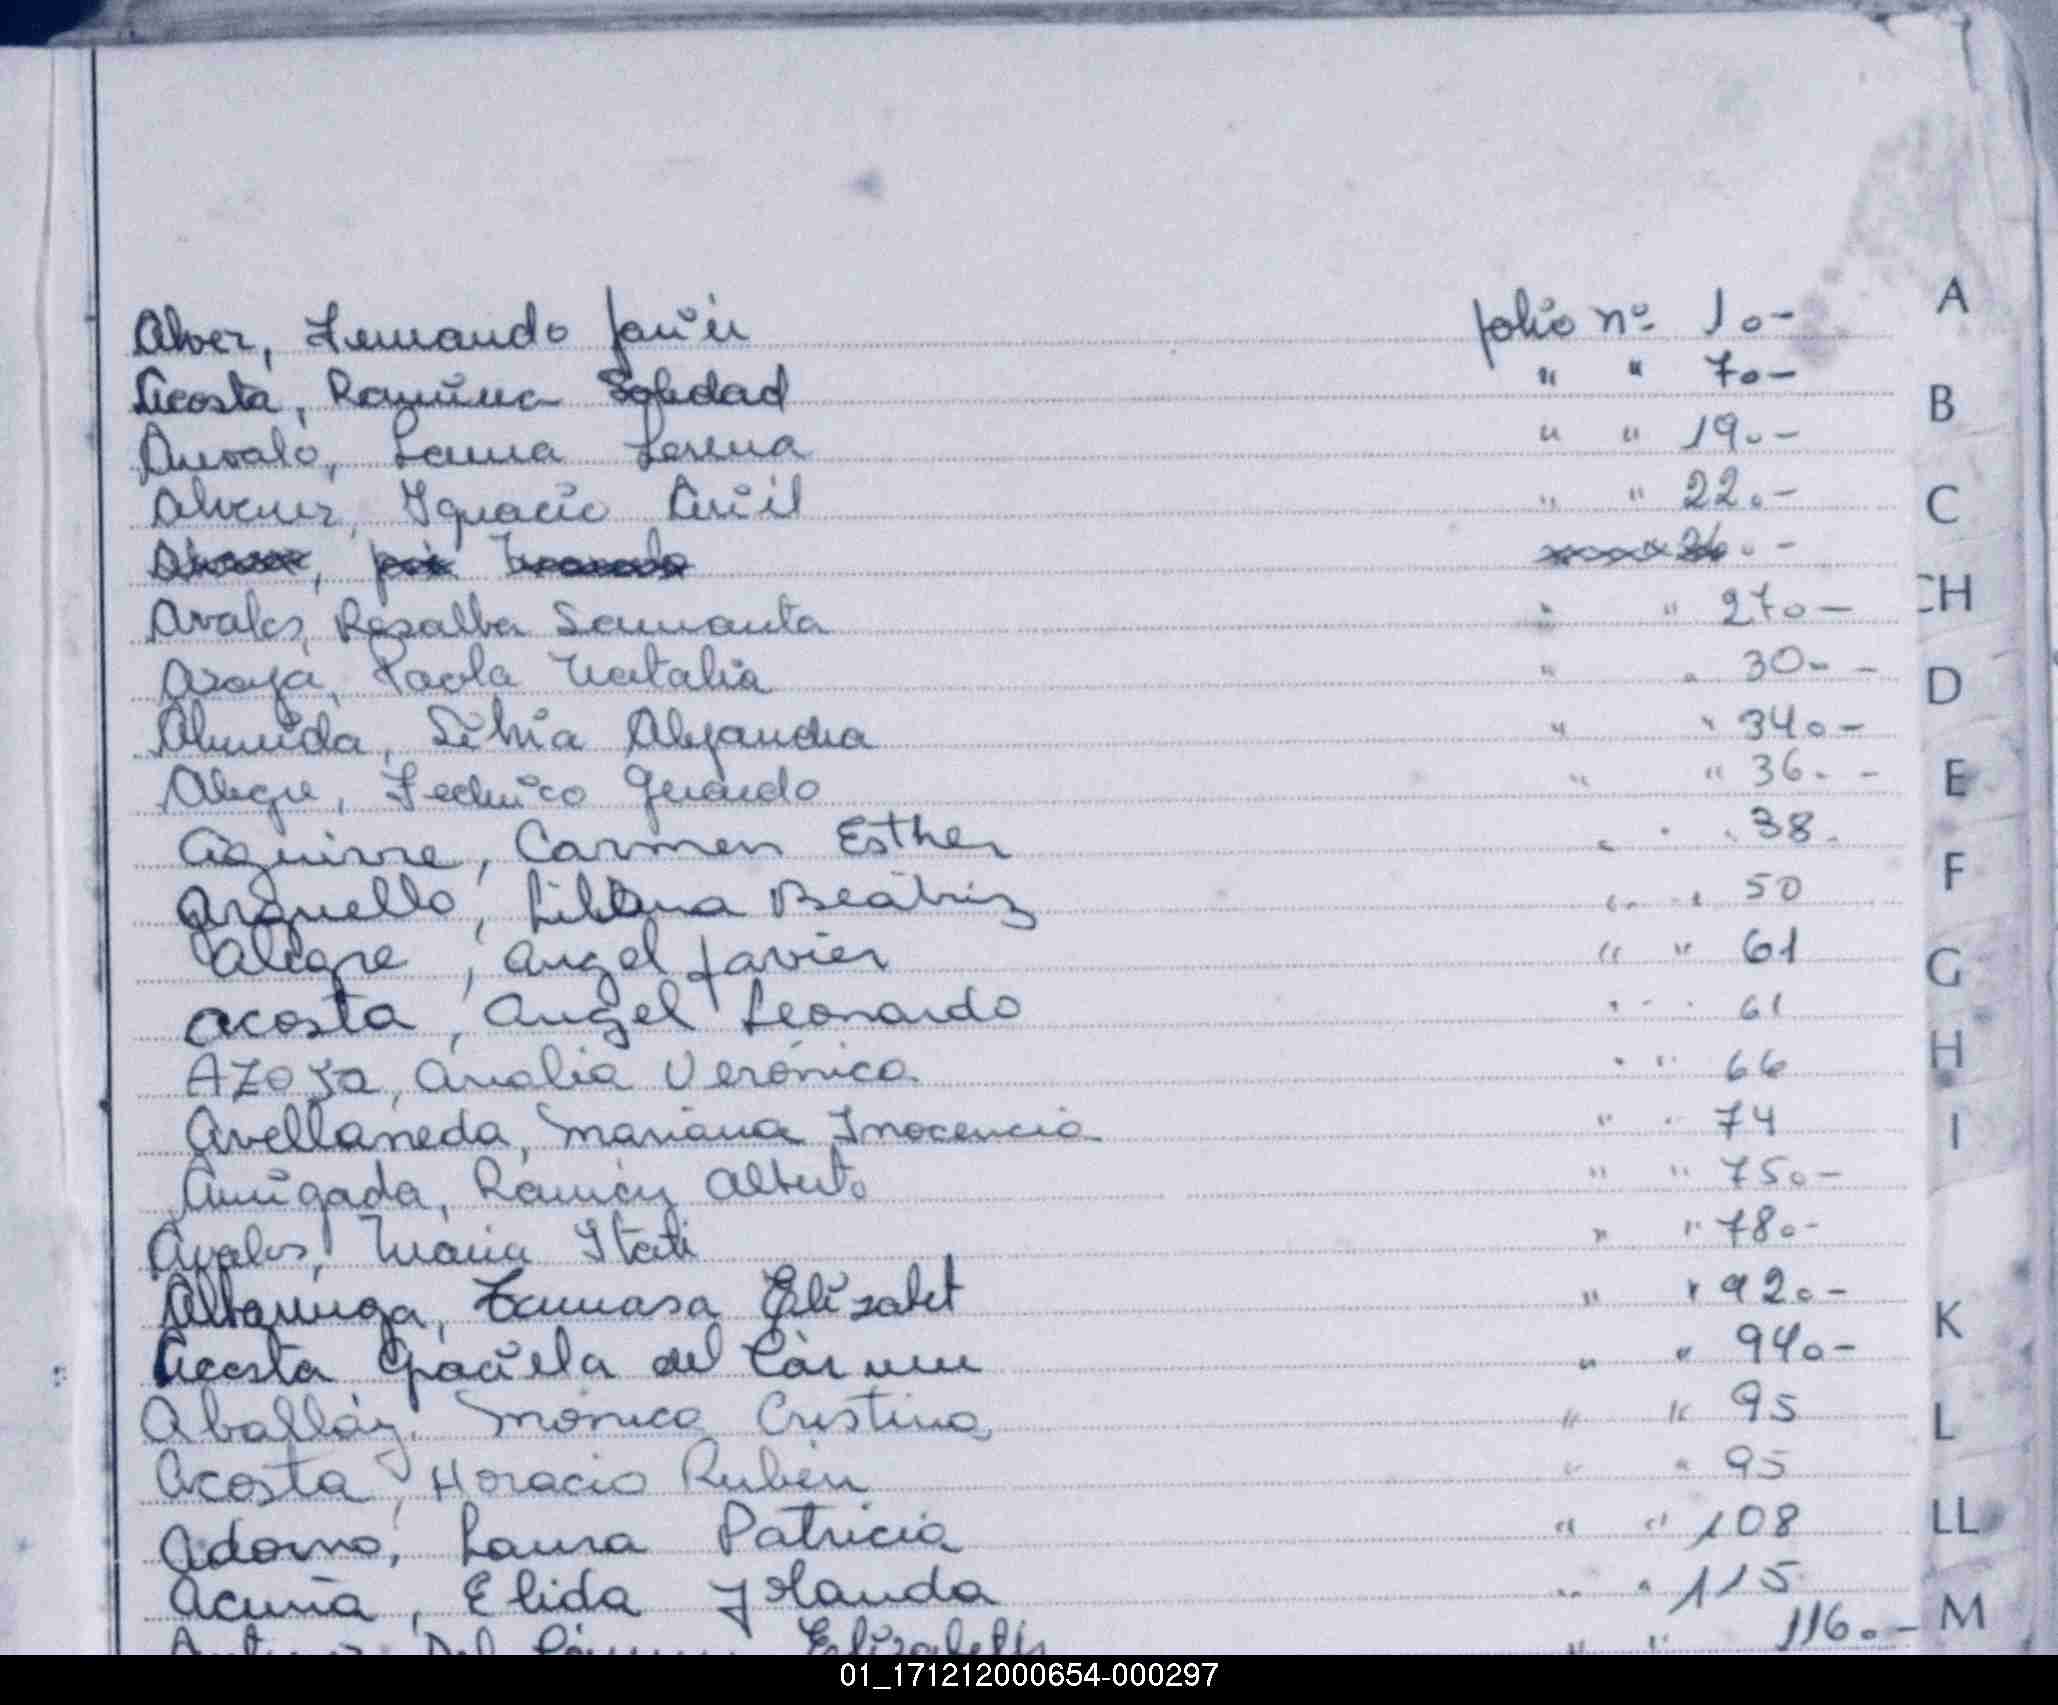 Alvez, Fernando Javier folio nº 10-
Acosta, Ramona Soledad " " 70-
Arevalo, Laura Lorena " " 190-
Alvarez, Ignacio Ariel " " 220-
260-
Avalos, Rosalba Samanta " " 270-
Azoya, Paola Natalia " " 300-
Almeida, Silvia Alejandra " " 340-
Alegre, Federico Gerardo " " 360-
Aguirre, Carmen Esther " " 38.
Arguello, Liliana Beatriz " " 50
Alegre, Angel Javier " " 61
Acosta, Angel Leonardo " " 61
AZOYA, Analia Verónica " " 66
Avellaneda, Mariana Inocencia " " 74
Amigada, Ramón Alberto " " 750-
Avalos, Maria Itati " " 780-
Tamara Elizabet " " 920-
Acosta Graciela del Cármen " " 940-
Aballáy, Mónica Cristina " " 95
Acosta, Horacio Rubén " " 95
Adorno, Laura Patricia " " 108
Acuña, Elida Yolanda " " 115
Del Cármen Elizabeth " " 1160-
A
B
C
CH
D
E
F
G
H
I
K
L
LL
M
01_171212000654-000297